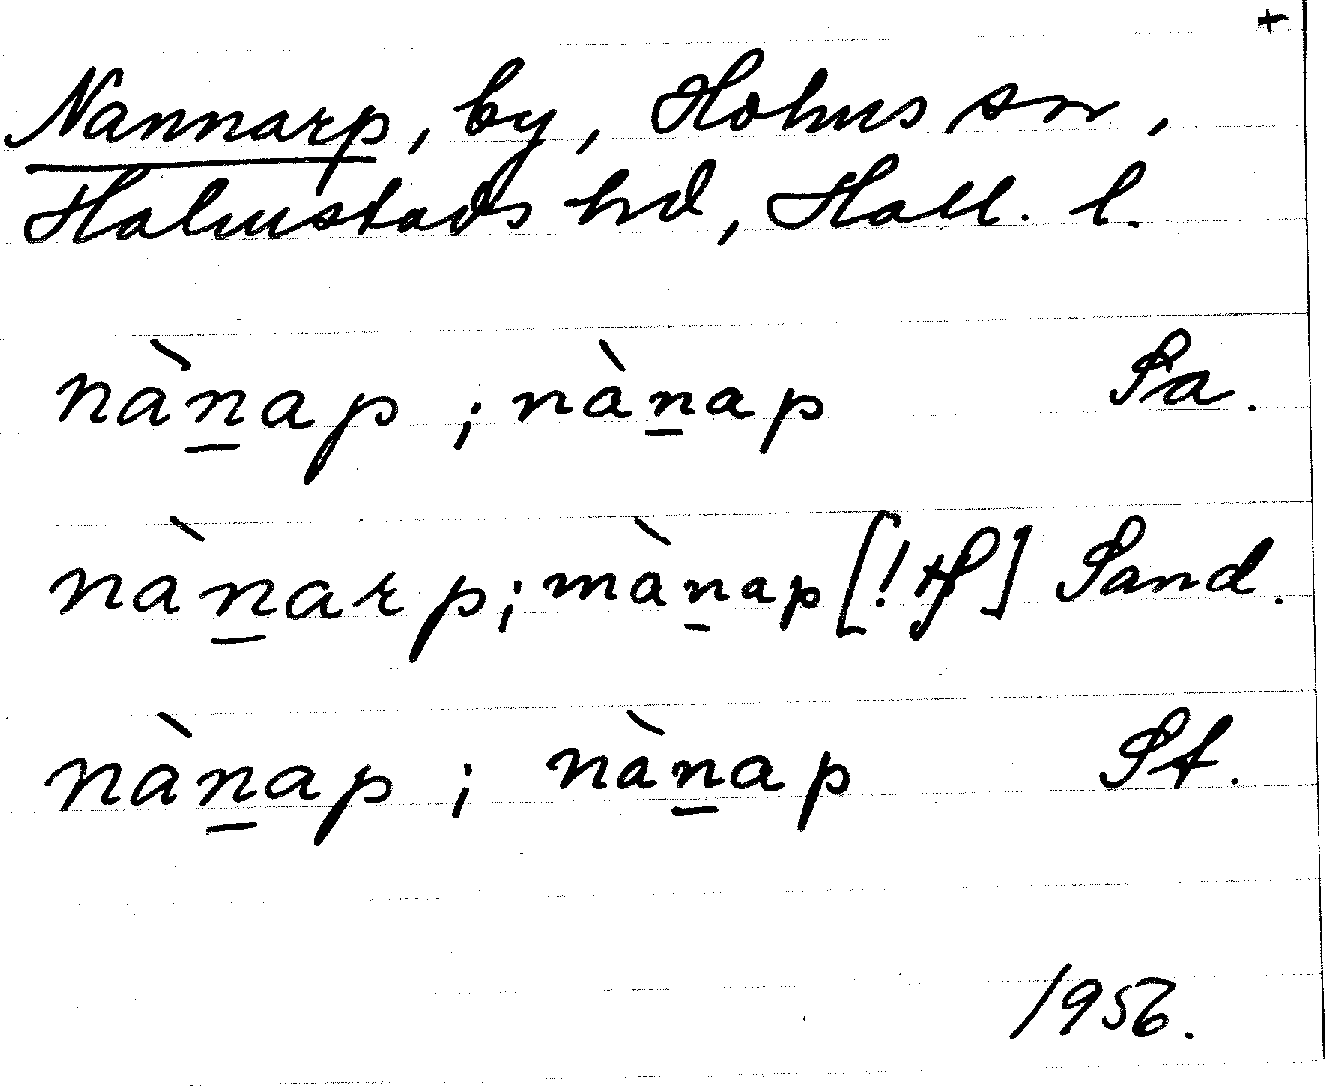 +
Nannarp, by, Holms sn,
Halmstads hd, Hall. l.
nàn̲ap ; nàn̲ap Sa.
nàn̲arp ; màn̲ap [! ] Sand.
nàn̲ap ; nàn̲ap St.
1956.